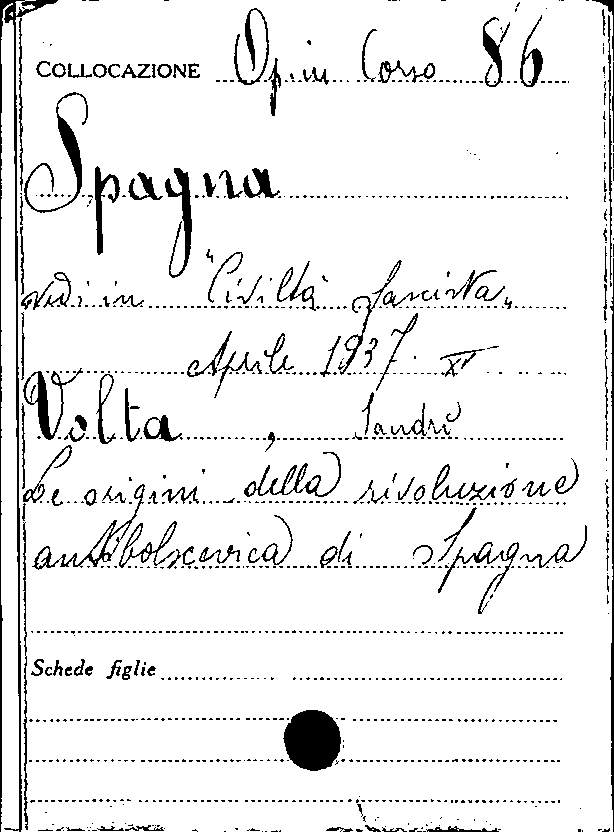 COLLOCAZIONE Op. in Corso 86
Spagna
vedi in "Civiltà fascista"
Aprile 1937. XV
Volta, Sandro
Le origini della rivoluzione
antibolscevica di Spagna
Schede figlie